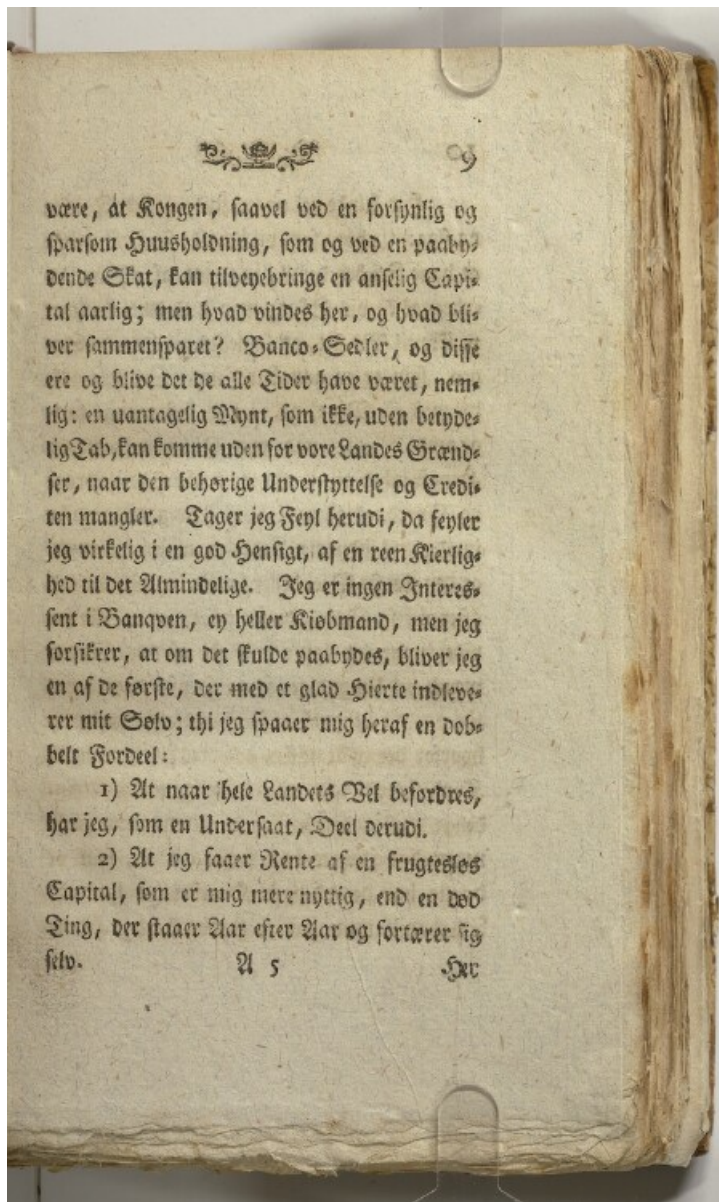 9
være, at Kongen, saavel ved en forsynlig og
sparsom Huusholdning, som og ved en paaby-
dende Skat, kan tilveyebringe en anselig Capi-
tal aarlig; men hvad vindes her, og hvad bli-
ver sammensparet? Banco-Sedler, og disse
ere og blive det de alle Tider have været, nem-
lig: en uantagelig Mynt, som ikke, uden betyde-
lig Tab, kan komme uden for vore Landes Grænd-
ser, naar den behørige Understyttelse og Credi-
ten mangler. Tager jeg Feyl herudi, da feyler
jeg virkelig i en god Hensigt, af en reen Kierlig-
hed til det Almindelige. Jeg er ingen Interes-
sent i Banqven, ey heller Kiøbmand, men jeg
forsikrer, at om det skulde paabydes, bliver jeg
en af de første, der med et glad Hierte indleve-
rer mit Sølv; thi jeg spaaer mig heraf en dob-
belt Fordeel:
1) At naar hele Landets Vel befordres,
har jeg, som en Undersaat, Deel derudi.
2) At jeg faaer Rente af en frugtesløs
Capital, som er mig mere nyttig, end en død
Ting, der staaer Aar efter Aar og fortærer sig
selv. A 5 Her